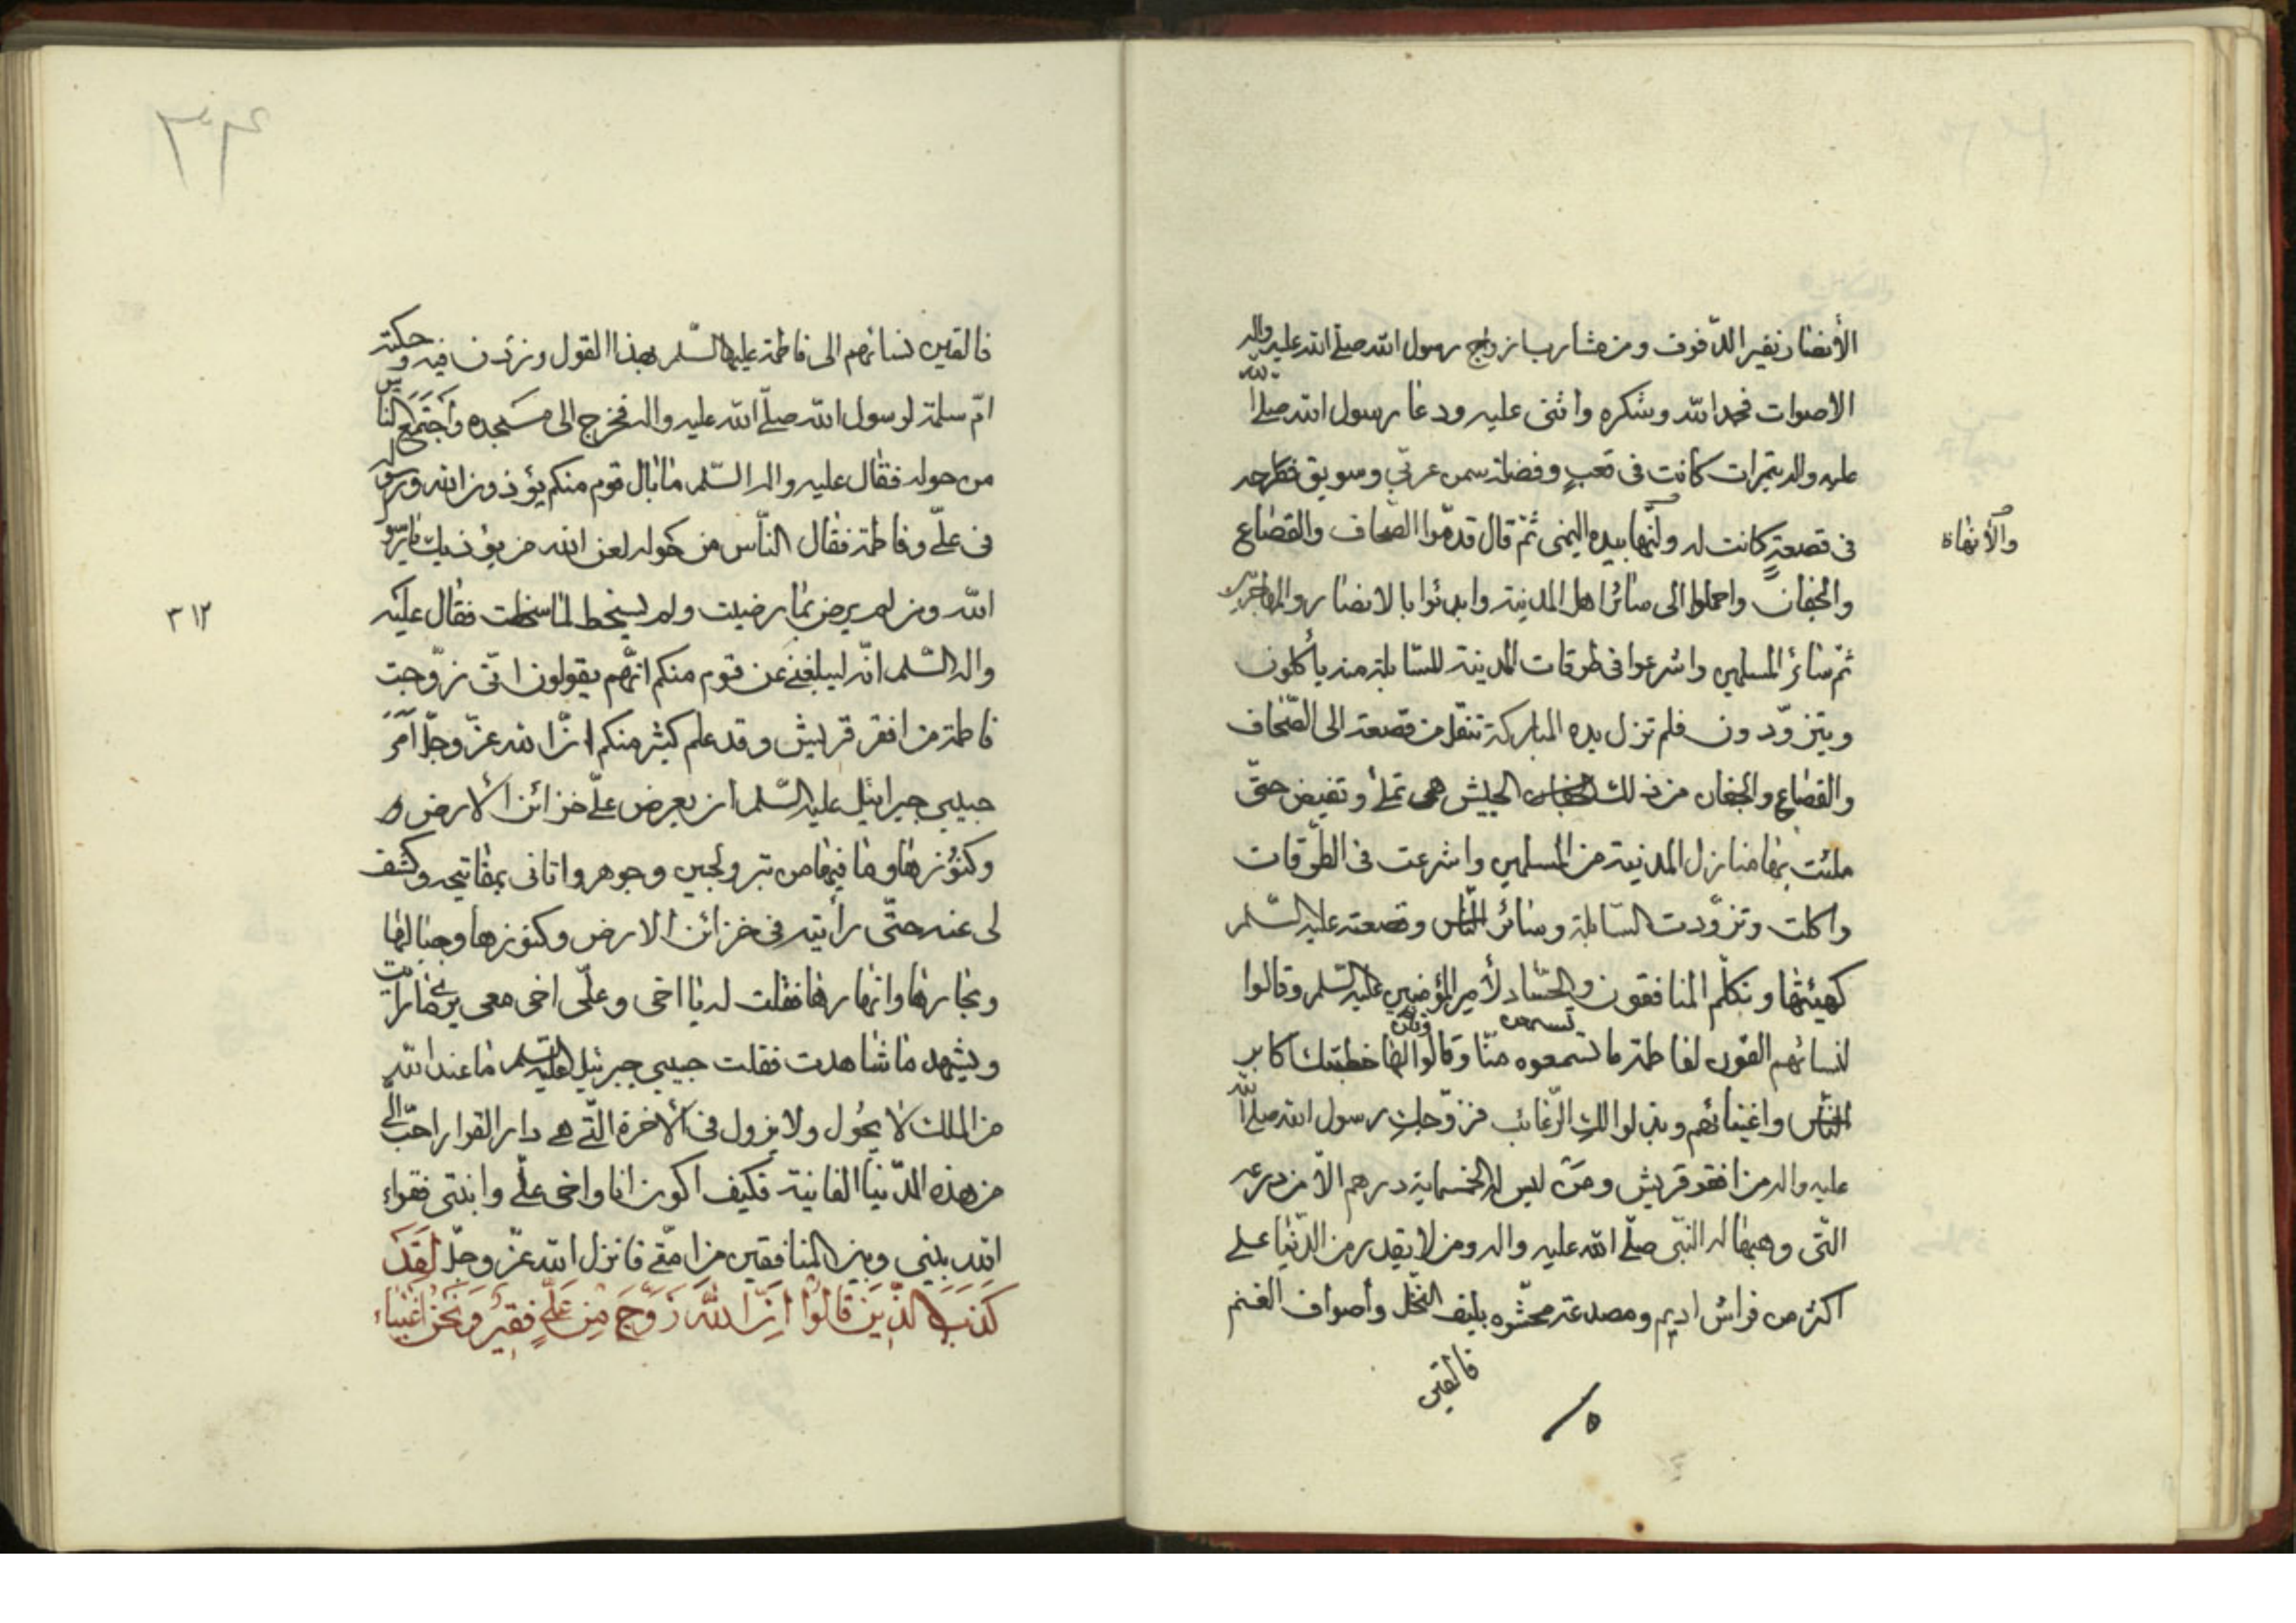 الأنصار بنقير الدفوف ومن مشارب ازواج رسول الله صلى الله عليه واله
الاصوات فحمد الله وشكره واثنى عليه ودعا رسول الله صلى الله
عليه واله بتمرات كانت فى قعب وفضلة سمن عربي وسويق فطرحه
فى قصعة كانت له ولتّها بيده اليمنى ثم قال قدموا الصحاف والقصاع
والأنفاة
والجفان واحملوا الى سائر اهل المدينة وابدئوا بالانصار والمهاجرين
ثم سائر المسلمين واشرعوا فى طرقات المدينة للسابلة منه يأكلون
ويتزوّدون فلم تزل يده المباركة تنقل من قصعته الى الصّحاف
والقصاع والجفان من ذلك الحيس هى تملأ وتفيض حتّى
ملئت بها منازل المدينة من المسلمين واشرعت فى الطّرقات
واكلت وتزوّدت السّابلة وسائر النّاس وقصعته عليه السّلم
كهيئتها وتكلّم المنافقون والحسّاد لأمير المؤمنين عليه السّلم وقالوا
لنسائهم القون لفاطمة ما تسمعوه منّا وقالوا لها خطبتك اكابر
النّاس واغنيائهم وبذلوا لك الرّغائب فزوّجك رسول الله صلى الله
عليه واله من افقر قريش ومن ليس له الخمسماية درهم الّا من درعه
التّى وهبها له النّبى صلّى الله عليه واله ومن لا يقدر من الدّنيا على
اكثر من فراش اديم ومصدعة محشوه بليف النّخل وأصواف الغنم
فالقين
فالقين نسائهم الى فاطمة عليها السّلم بهذا القول وزدن فيه وحكته
امّ سلمة لرسول الله صلّى الله عليه واله فخرج الى مسجده واجتمع النّاس
من حوله فقال عليه واله السّلم ما بال قوم منكم يؤذون الله ورسوله
فى علىّ وفاطمة فقال النّاس من حوله لعن الله من يؤذيك يا رسول
الله ومن لم يرض بما رضيت ولم يسخط لما سخطت فقال عليه
٣١٢
واله السّلم انّه ليبلغنى عن قوم منكم انّهم يقولون انّى زوّجت
فاطمة من افقر قريش وقد علم كثير منكم انّ الله عزّ وجلّ امر
حبيبى جبرائيل عليه السّلم ان يعرض علىّ خزائن الأرض و
وكنوزها وما فيها من تبر ولجين وجوهر واتانى بمفاتيحه وكشف
لى عنه حتّى رأيته فى خزائن الارض وكنوزها وجبالها
وبحارها وانهارها فقلت له يا اخى وعلّى اخى معى يرى ما رأيت
ويشهد ما شاهدت فقلت حبيبى جبرئيل عليه السّلم ما عند الله
من الملك لا يحول ولا يزول فى الأخرة الّتى هى دار القرار احبّ الىّ
من هذه الدّنيا الفانية فكيف اكون انا واخى علىّ وابنتى فقراء
الله بينى وبين المنافقين من امّتى فانزل الله عزّ وجلّ لقد
كذب الّذين قالوا انّ الله زوّج من علىّ فقير ونحن اغنياء